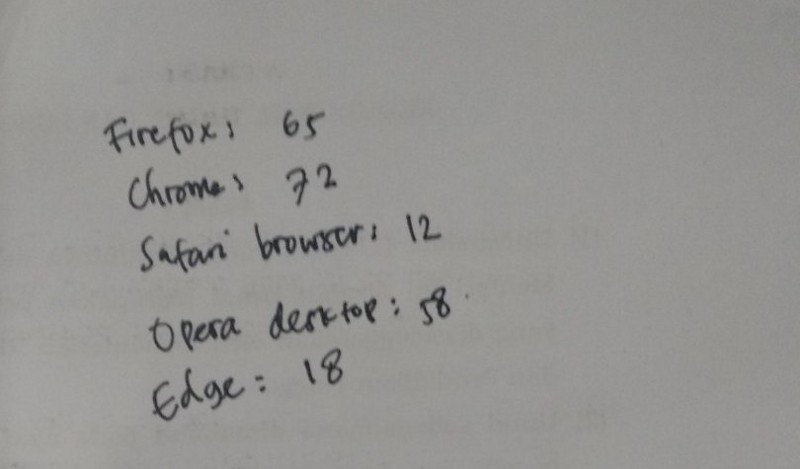 Firefox: 65
Chrome: 72
Safari browser: 12
Opera desktop: 58
Edge: 18